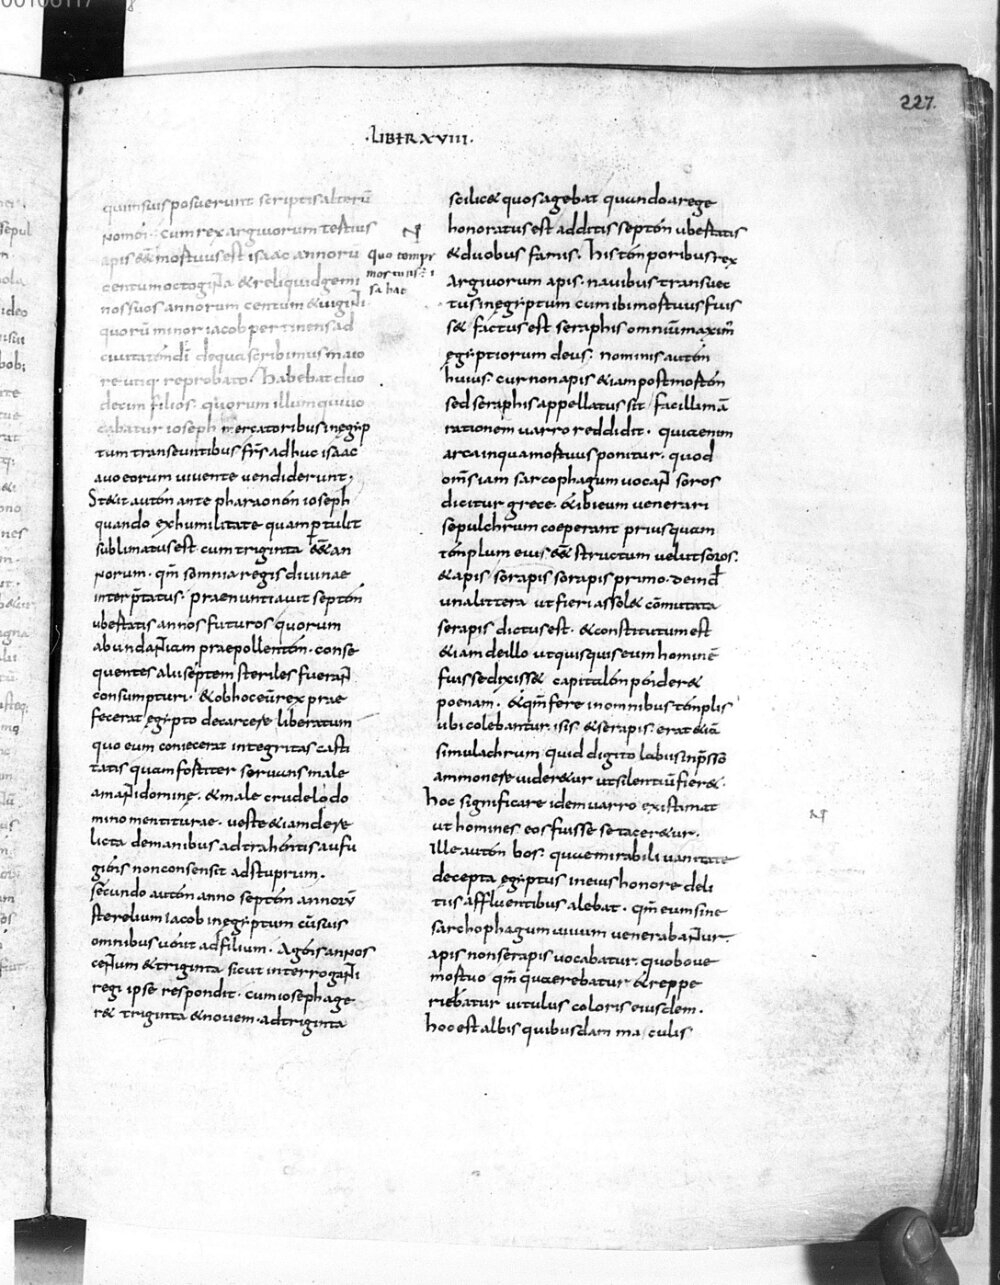 227.
·LIBER XVIII·
quam suis posuerunt scriptis alterũ
nomen. cum rex argiuorum tertius
apis ẽẽ mortuus est isaac annorũ
centum octoginta & reliquid gemi
nos suos annorum centum & uiginti.
quorũ minor iacob pertinens ad
ciuitatem dĩ de qua scribimus maio
re utiq; reprobato. habebat duo
decim filios. quorum illum qui uo
cabatur ioseph mercatoribus in egip
tum transeuntibus frs̃ adhuc isaac
auo eorum uiuente uendiderunt;
Stetit autem ante pharaonem ioseph
quando ex humilitate quam ptulit
sublimatus est cum triginta ẽẽ an
norum. qm̃ somnia regis diuinae
interp̃tatus. praenuntiauit septem
ubertatis annos futuros quorum
abundantiam praepollentem. conse
quentes alii septem steriles fuerant
consumpturi. & ob hoc eũ rex prae
fecerat egipto de carcere liberatum
quo eum coniecerat integritas casti
tatis quam fortiter seruans male
amanti domine. & male credulo do
mino mentiturae. ueste & iam dere
licta de manibus adtrahentis aufu
giens non consensit ad stuprum.
secundo autem anno septem annorũ
sterelium iacob in egyptum cũ suis
omnibus uenit ad filium. Agens annos
centum & triginta sicut interroganti
regi ipse respondit. cum ioseph age
r& triginta & nouem. ad triginta
quo tempr
mortuus ÷ i
sa hac
scilic& quos agebat quando a rege
honoratus est additis septem ubertatis
& duobus famis. his temporibus rex
argiuorum apis. nauibus transuec
tus in egiptum cum ibi mortuus fuis
s& factus est seraphis omnium maxim̃
egiptiorum deus. nominis autem
huius. cur non apis & iam post mortem
sed seraphis appellatus sit facillimã
rationem uarro reddidit. quia enim
arca in qua mortuus ponitur. quod
om̃s iam sarcophagum uocant soros
dicitur grece. & ibi eum uenerari
sepulchrum coeperant priusquam
templum eius ẽẽ structum uelut soros.
& apis sorapis sorapis primo. deinde
una littera ut fieri assol& cõmutata
serapis dictus est. & constitutum est
& iam de illo ut quisquis eum hominẽ
fuisse dixiss& capitalem pender&
poenam. & qm̃ fere in omnibus templis
ubi colebantur. isis. & serapis. erat & iã
simulachrum quid digito labiis inp̃sso
ammonere uider&ur ut silentiũ fier&.
hoc significare idem uarro existimat
ut homines eos fuisse se tacer&ur.
Ille autem bos. quem mirabili uanitate
decepta egiptus in eius honore deli
tiis affluentibus alebat. qm̃ eum sine
sarchophagum uiuum uenerabantur.
apis non serapis uocabatur. quo boue
mortuo qm̃ quaerebatur & reppe
riebatur uitulus coloris eiusdem.
hoc est albis quibusdam maculis